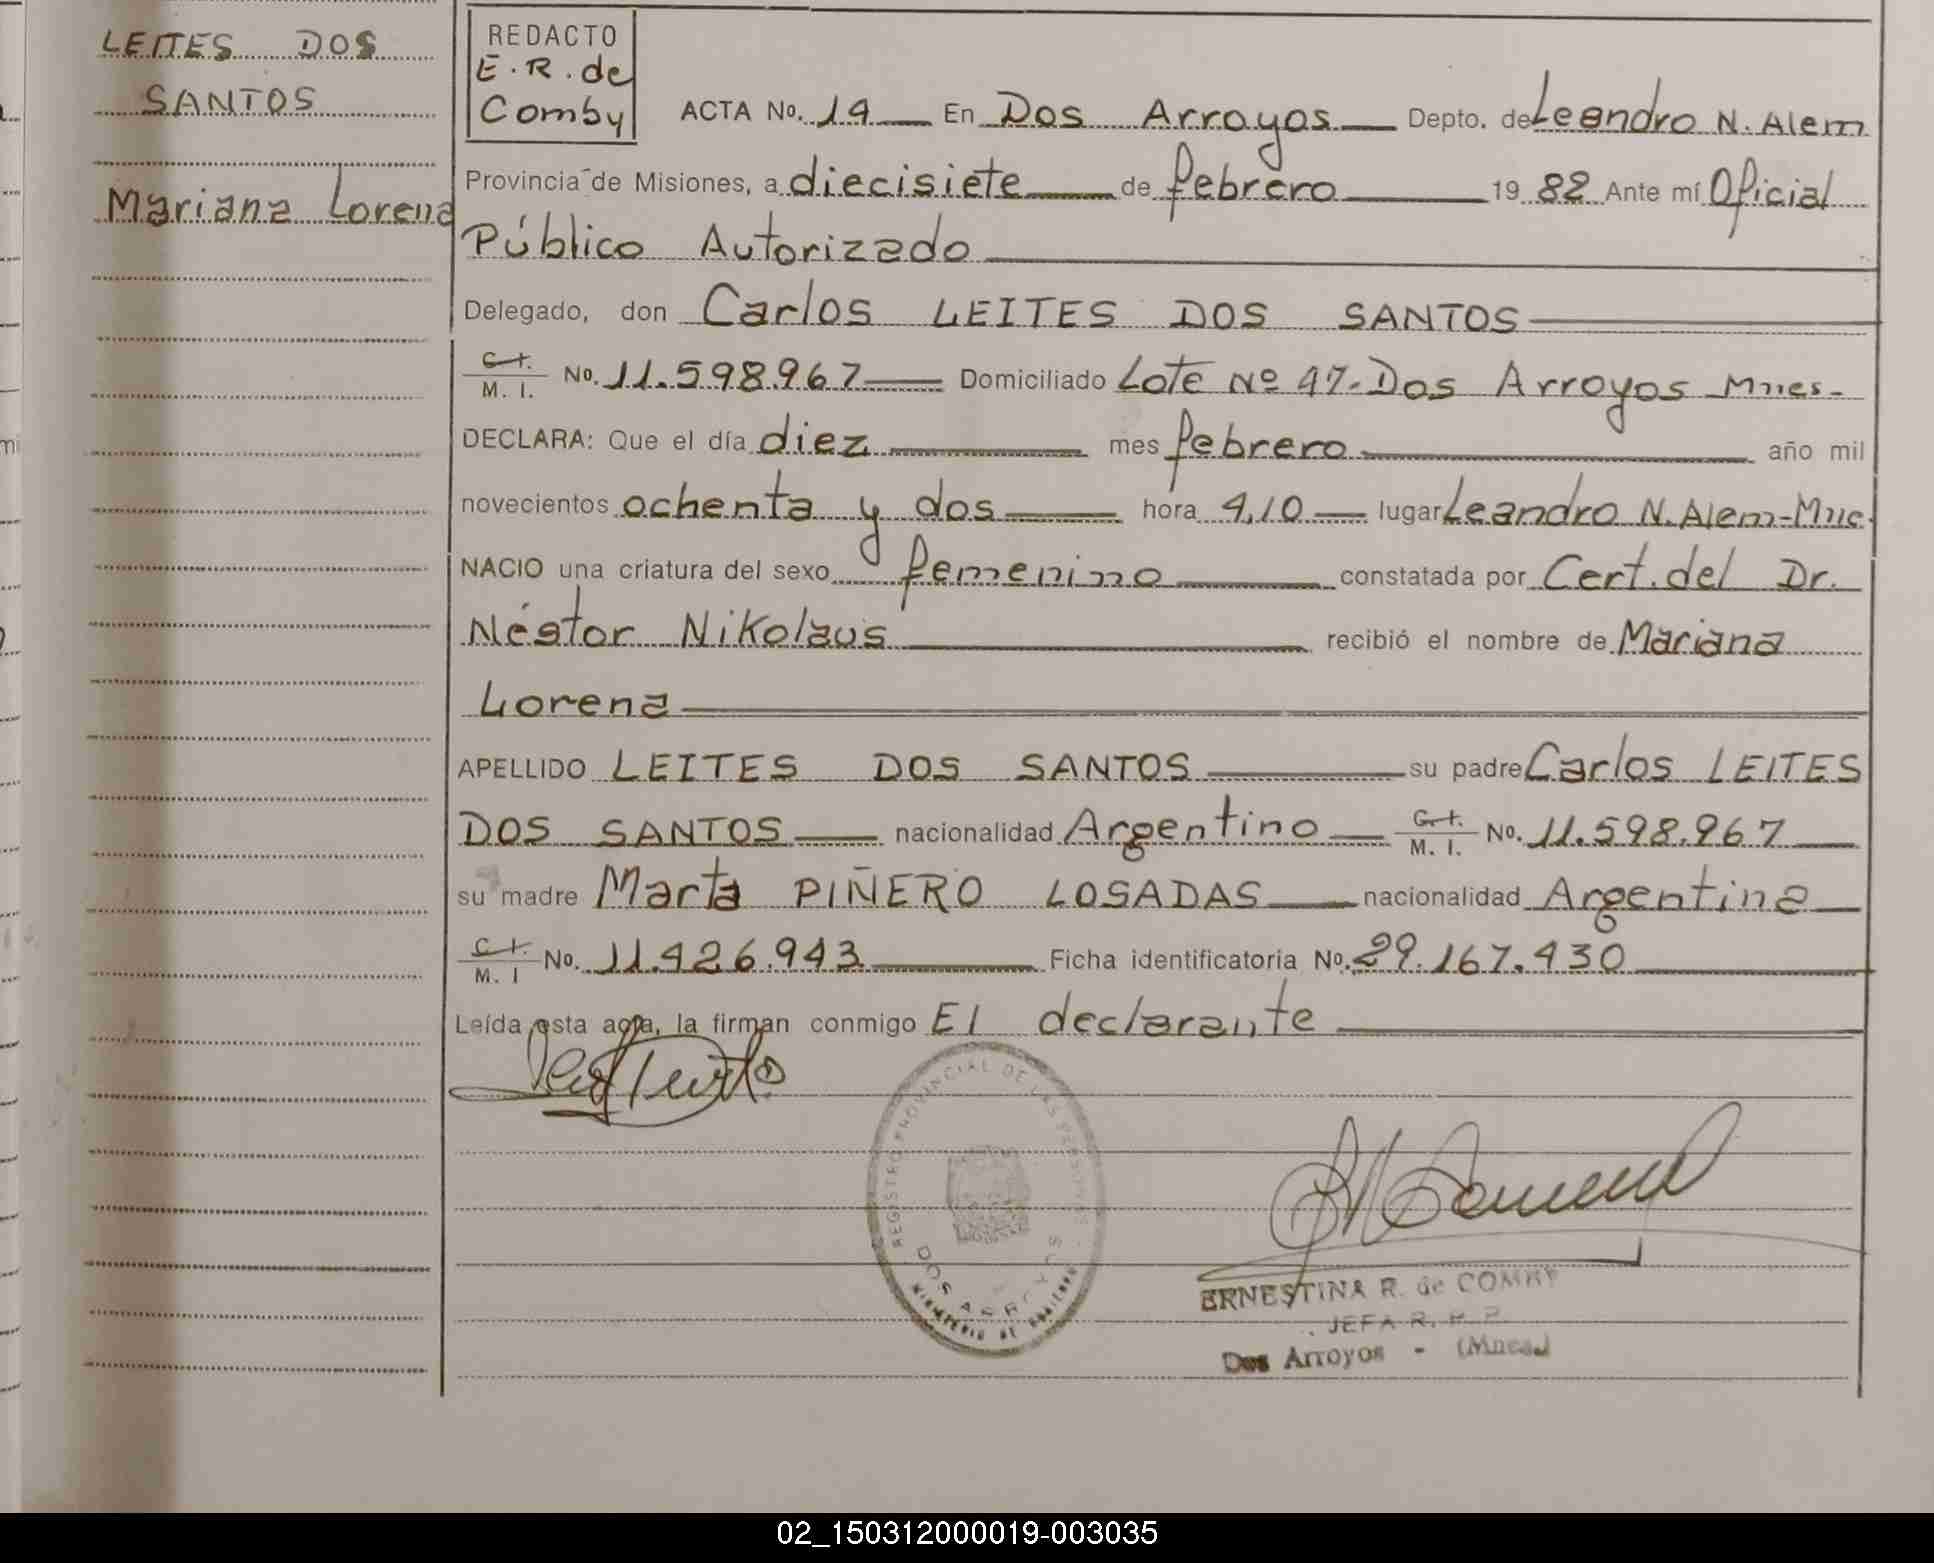 LEITES DOS
SANTOS
Mariana Lorena
REDACTO
E.R. de
Comby
ACTA No. 14 En Dos Arroyos Depto. de Leandro N. Alem
Provincia de Misiones, a diecisiete de febrero 19 82 Ante mí Oficial
Público Autorizado
Delegado, don Carlos LEITES DOS SANTOS
C.I.
M. I. No. 11.598.967 Domiciliado Lote Nº 47-Dos Arroyos Mnes-
DECLARA: Que el día diez mes febrero año mil
novecientos ochenta y dos hora 4,10 lugar Leandro N. Alem-Mnes
NACIO una criatura del sexo femenino constatada por Cert. del Dr.
Néstor Nikolaus recibió el nombre de Mariana
Lorena
APELLIDO LEITES DOS SANTOS su padre Carlos LEITES
DOS SANTOS nacionalidad Argentino C.I. M. I. No. 11.598.967
su madre Marta PIÑERO LOSADAS nacionalidad Argentina
C.I.
M. I No. 11.426.943 Ficha identificatoria No. 29.167.430
Leída esta acta, la firman conmigo El declarante
REGISTRO PROVINCIAL DE LAS PERSONAS
DOS ARROYOS
MINISTERIO DE GOBIERNO
ERNESTINA R. de COMBY
JEFA R. P. P.
Dos Arroyos - (Mnes.)
02_150312000019-003035